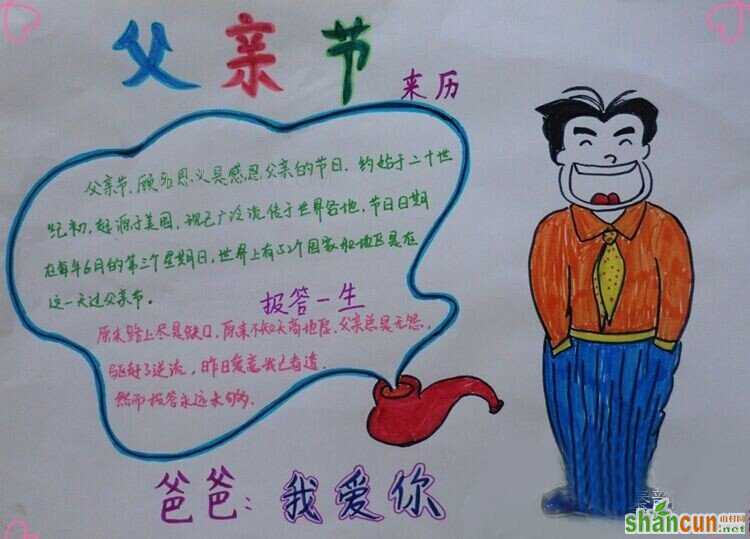 父亲节
来历
父亲节，顾名思义是感恩父亲的节日。约始于二十世
纪初，起源于美国，现已广泛流传于世界各地，节日日期
在每年6月的第三个星期日，世界上有52个国家和地区是在
这一天过父亲节。
报答一生
原来路上尽是缺口，原来不知天高地厚，父亲总是无怨，
驱赶了逆流，昨日
然而报答永远未够。
爸爸：我爱你
shancun
山村网
.net